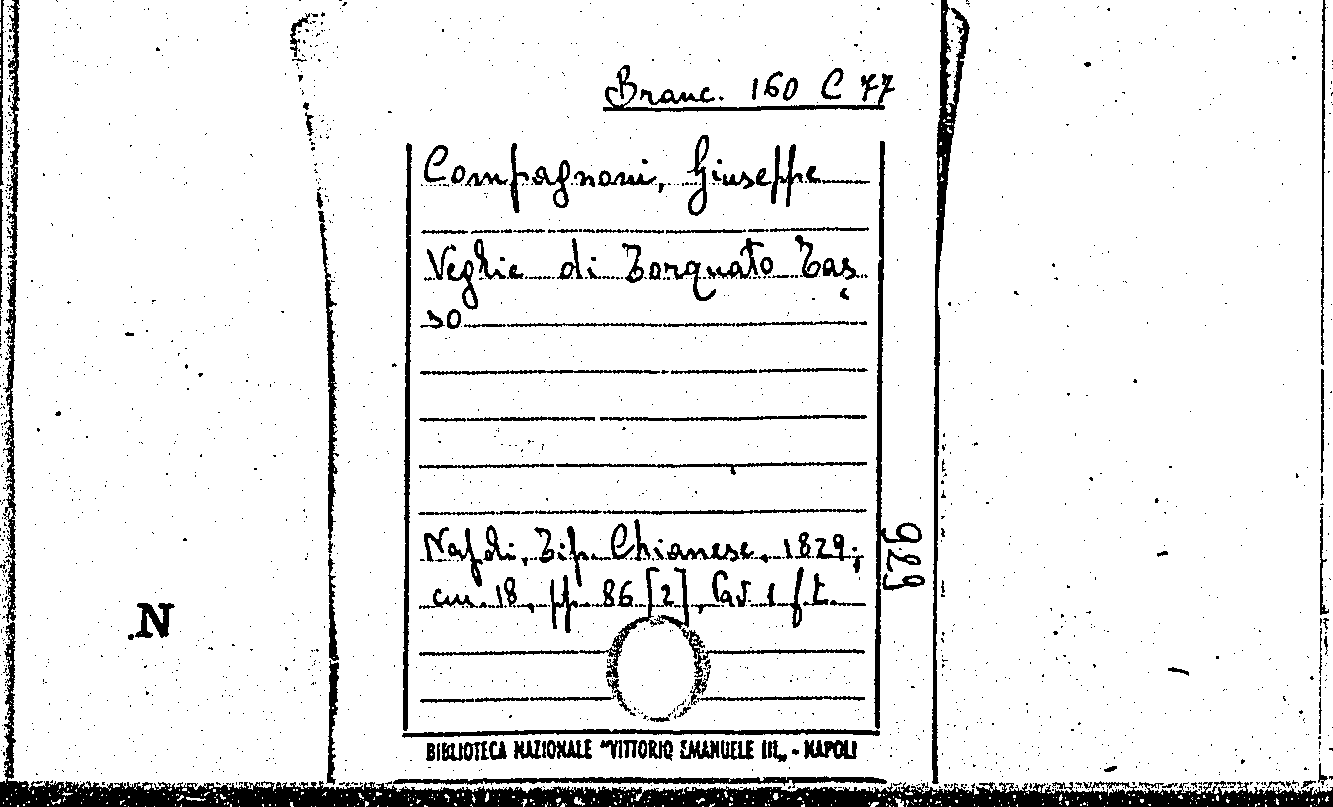 Branc. 160 C 77
Compagnoni, Giuseppe
Veglie di Torquato Tas
so
Napoli, Tip. Chianese, 1829;
cm. 18, pp. 86 [2], tav 1 f. t.
929
N
BIBLIOTECA NAZIONALE "VITTORIO EMANUELE III„ - NAPOLI